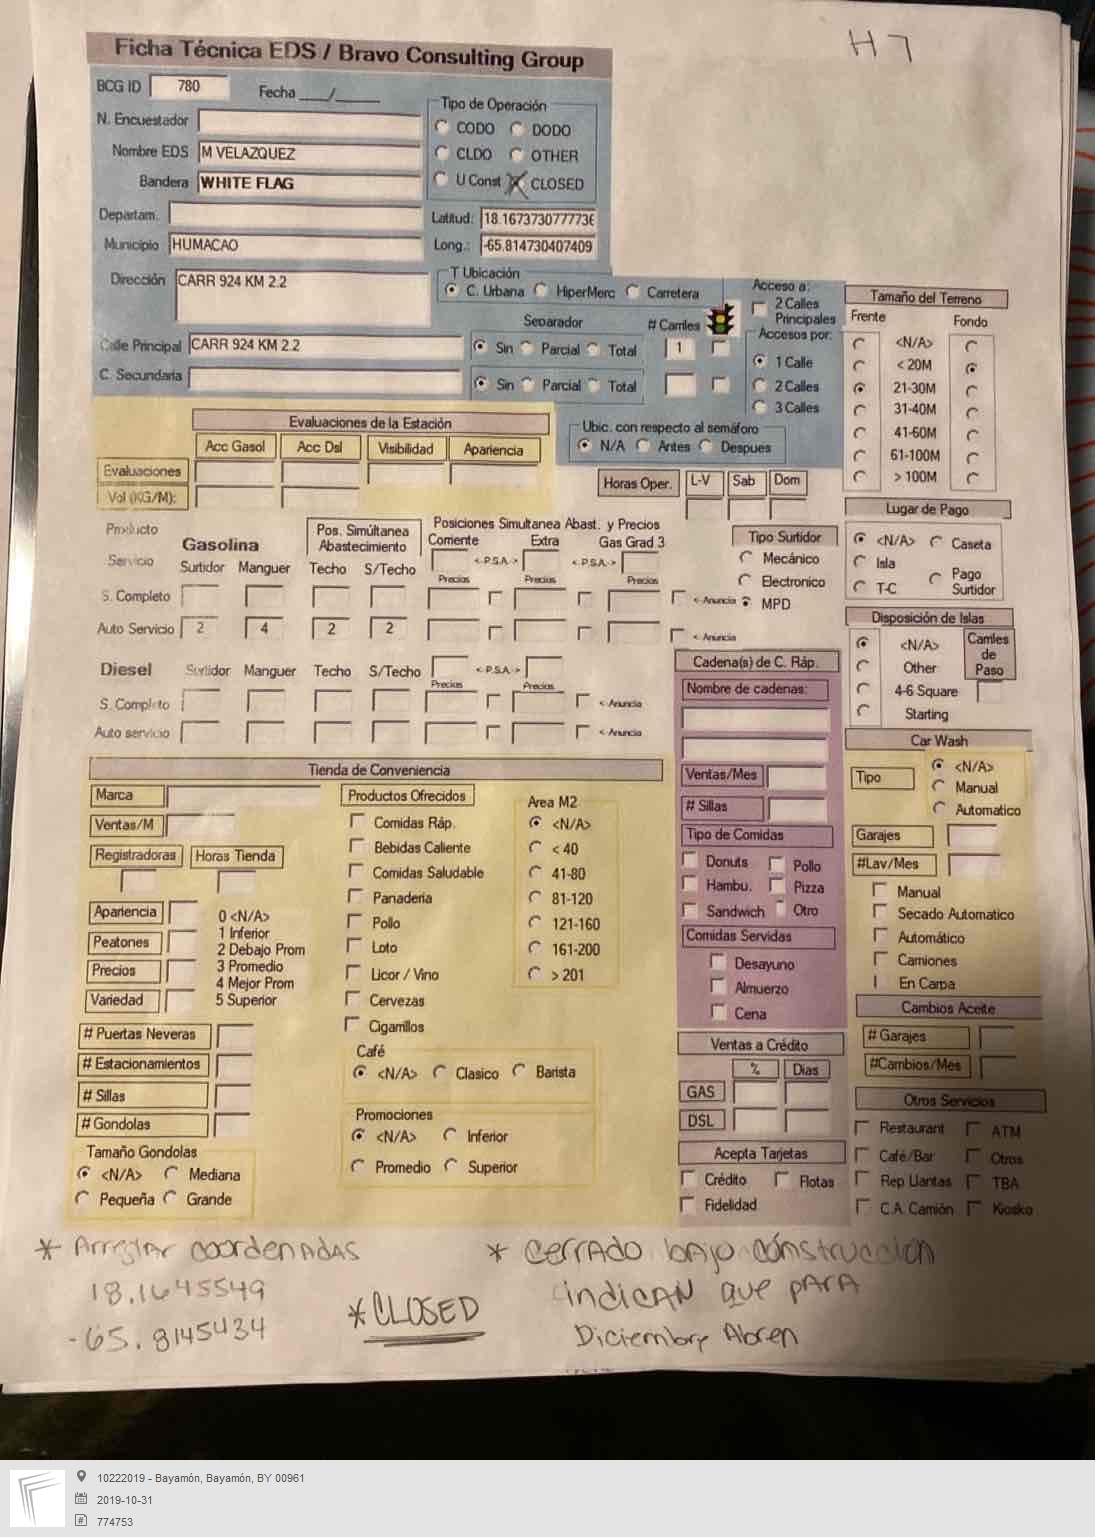 H7
Ficha Técnica EDS / Bravo Consulting Group
BCG ID 780 Fecha ___/_____
N. Encuestador
Nombre EDS M VELAZQUEZ
Bandera WHITE FLAG
Tipo de Operación
CODO DODO
CLDO OTHER
U Const CLOSED
Departam.
Municipio HUMACAO
Latitud: 18.1673730777736
Long.: -65.814730407409
Dirección CARR 924 KM 2.2
T Ubicación
C. Urbana HiperMerc Carretera
Calle Principal CARR 924 KM 2.2
C. Secundaria
Separador # Carriles
Sin Parcial Total 1
Sin Parcial Total
Acceso a:
2 Calles
Principales
Accesos por:
1 Calle
2 Calles
3 Calles
Ubic. con respecto al semáforo
N/A Antes Despues
Tamaño del Terreno
Frente Fondo
<N/A>
< 20M
21-30M
31-40M
41-60M
61-100M
> 100M
Evaluaciones de la Estación
Acc Gasol Acc Dsl Visibilidad Apariencia
Evaluaciones
Vol (KG/M):
Horas Oper. L-V Sab Dom
Lugar de Pago
<N/A> Caseta
Isla
T-C Pago
Surtidor
Producto
Servicio
Gasolina
Surtidor Manguer
Pos. Simúltanea
Abastecimiento
Techo S/Techo
Posiciones Simultanea Abast. y Precios
Corriente Extra Gas Grad 3
<-P.S.A.-> <-P.S.A.->
Precios Precios Precios
S. Completo <-Anuncia
Auto Servicio 2 4 2 2 <-Anuncia
Tipo Surtidor
Mecánico
Electronico
MPD
Disposición de Islas
<N/A>
Other
4-6 Square
Starting
Carriles
de
Paso
Diesel Surtidor Manguer Techo S/Techo <-P.S.A.->
Precios Precios
S. Completo <-Anuncia
Auto servicio <-Anuncia
Cadena(s) de C. Ráp.
Nombre de cadenas:
Ventas/Mes
# Sillas
Tipo de Comidas
Donuts Pollo
Hambu. Pizza
Sandwich Otro
Comidas Servidas
Desayuno
Almuerzo
Cena
Car Wash
Tipo
<N/A>
Manual
Automatico
Garajes
#Lav/Mes
Manual
Secado Automatico
Automático
Camiones
En Carpa
Tienda de Conveniencia
Marca
Ventas/M
Registradoras Horas Tienda
Apariencia
Peatones
Precios
Variedad
0 <N/A>
1 Inferior
2 Debajo Prom
3 Promedio
4 Mejor Prom
5 Superior
# Puertas Neveras
# Estacionamientos
# Sillas
# Gondolas
Tamaño Gondolas
<N/A> Mediana
Pequeña Grande
Productos Ofrecidos
Comidas Ráp.
Bebidas Caliente
Comidas Saludable
Panaderia
Pollo
Loto
Licor / Vino
Cervezas
Cigarrillos
Area M2
<N/A>
< 40
41-80
81-120
121-160
161-200
> 201
Café
<N/A> Clasico Barista
Promociones
<N/A> Inferior
Promedio Superior
Ventas a Crédito
% Dias
GAS
DSL
Acepta Tarjetas
Crédito Flotas
Fidelidad
Cambios Aceite
# Garajes
#Cambios/Mes
Otros Servicios
Restaurant ATM
Café/Bar Otros
Rep Llantas TBA
C.A. Camión Kiosko
* Arreglar coordenadas
18.1645549
-65.8145434
*CLOSED
* Cerrado bajo construccion
indican que para
Diciembre Abren
10222019 - Bayamón, Bayamón, BY 00961
2019-10-31
774753